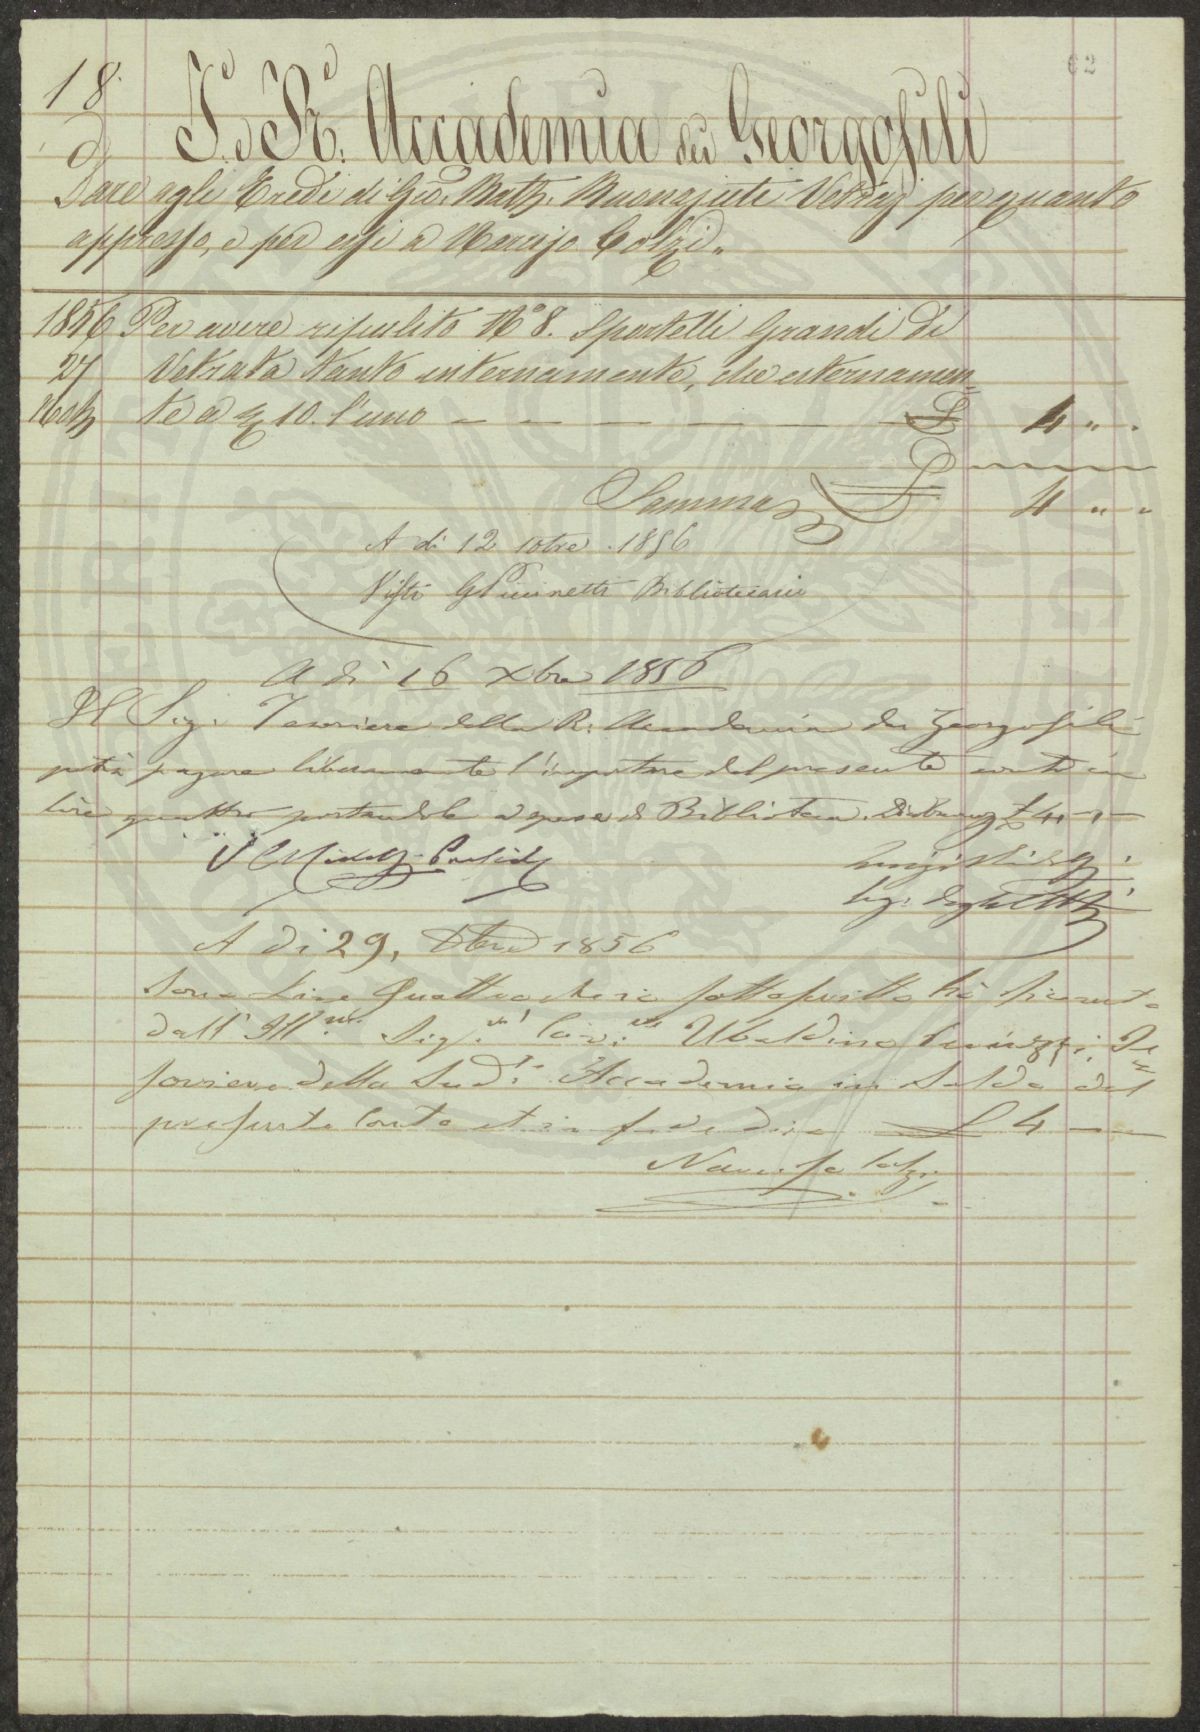 62
18
I. e R. Accademia dei Georgofili
Dare agli Eredi di Gio. Batt. Buonajuti Vetraj per quanto
appresso, e per essi a Narciso Colzi.,
1856 Per avere ripulito N° 8. Sportelli Grandi di
27 Vetrata tanto internamente, che esternamen=
te a 10. l'uno — — — — — £ 4 " "
Somma £ 4 " "
A di 12 Xbre 1856
Visto Biblioteario
A dì 16 Xbre 1856
Il Sig. Tesoriere della R. Accademia dei Georgofili
potrà pagare liberamente l'importare del presente conto in
lire quattro portandole a spesa di Biblioteca. £ 4 — —
A di 29, Xbre 1856
Sono Lire Quattro che io sottoscritto hò ricevuto
dall' Ill.mo Sig.r Cav.re Ubaldino Peruzzi, Te=
soriere della Sud.a Accademia in Saldo del
presente Conto et in fede dico £ 4 —
Narciso Colzi